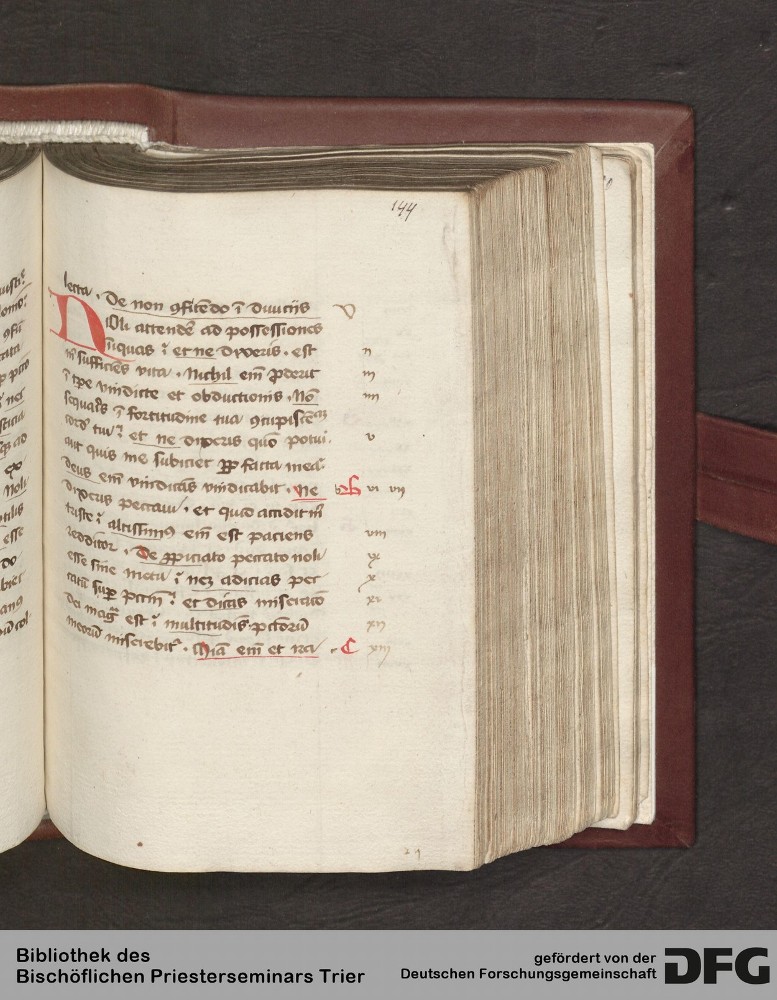 144
lecta . De non ꝯfitēdo ī diuiciis V
Noli attendē ad possessiones
iniquas ⁊ et ne dixeris . est ii
m̄ sufficiēs vita . Nichil em̄ ꝓderit iii
ī tꝑe vindicte et obductionis . Nō iiii
sequaris ī fortitudine tua ꝯcupiscē
cord' tui ⁊ et ne dixeris quō potui . v
aut quis me subiciet ꝓp facta mea
deus em̄ vindicās vindicabit . Ne b vi vii
dixeus peccaui . et quid accidit m
triste ⁊ altissimꝯ em̄ est paciens viii
redditor . De ꝓpiciato peccato noli ix
esse sine metu ⁊ neqꝫ adicias pec x
catū suꝑ pctm̄ ⁊ et dicas miseracō xi
dei mag est ⁊ multitudīs pctorū xii
meorū miserebit . Mīa em̄ et ira C xiii
29
Bibliothek des
Bischöflichen Priesterseminars Trier
gefördert von der
Deutschen Forschungsgemeinschaft
DFG